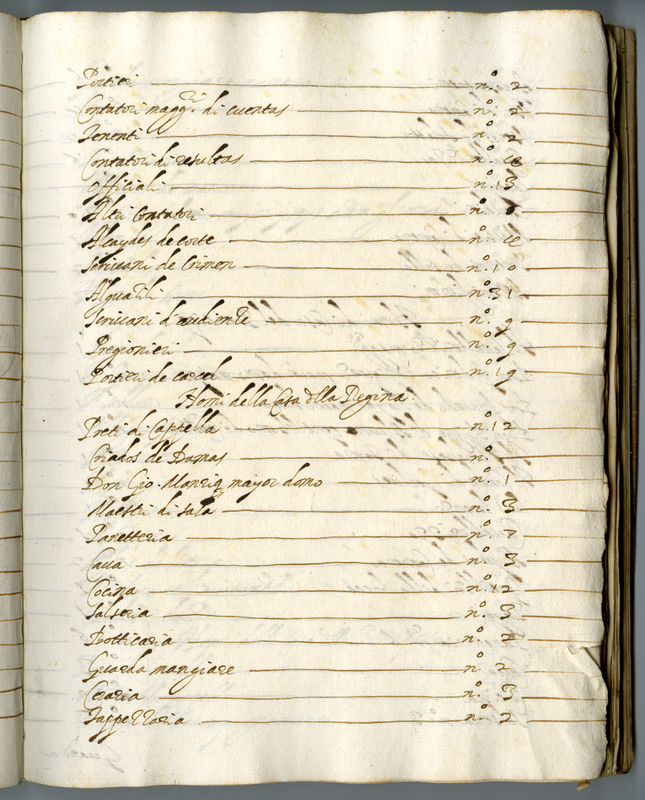 Portieri n.º 2
Contatori magg.ri di cuentas n.º 2
Tenenti n.º 2
Contatori di resultas n.º
Officiali n.º 13
Altri Contatori n.º
Alcaydes de corte n.º
Scrivani de Crimen n.º 10
Alguatili n.º 31
Scrivani d'audiente n.º 9
Pregionieri n.º 9
Portieri de carcel n.º 19
Homi della Casa dlla Regina
Preti di Cappella n.º 12
Criados de Damas n.º
Don Gio. Manriq mayor domo n.º 1
Maestri di sala n.º 3
Panetteria n.º 7
Cava n.º 3
Cocina n.º 12
Salseria n.º 3
Botticaria n.º 2
Guarda mangiare n.º 2
Ceraria n.º 3
Tappezzaria n.º 2